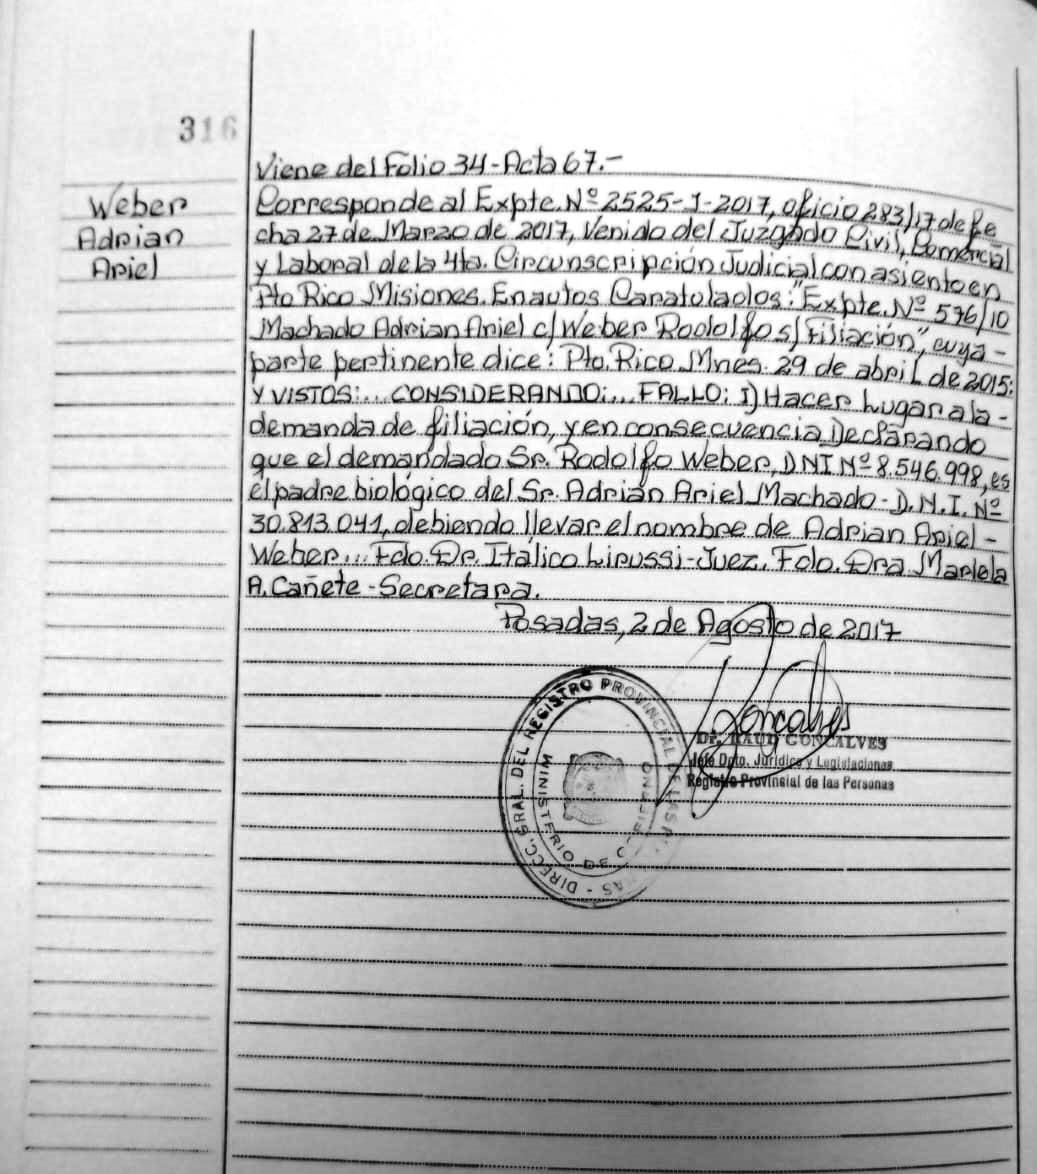 316
Viene del Folio 34-Acta 67.-
Weber
Adrian
Ariel
Corresponde al Expte. Nº 2525-J-2017, oficio 283/17 de fe
cha 27 de Marzo de 2017, Venido del Juzgado Civil, Comercial
y Laboral de la 4ta. Circunscripción Judicial con asiento en
Pto Rico Misiones. En autos Caratulados: "Expte. Nº 576/10
Machado Adrian Ariel c/ Weber Rodolfo s/ Filiación", cuya-
parte pertinente dice: Pto. Rico Mnes. 29 de abril de 2015:
Y VISTOS:... CONSIDERANDO:... FALLO: I) Hacer Lugar a la-
demanda de filiación, y en consecuencia Declarando
que el demandado Sr. Rodolfo Weber, DNI Nº 8.546.998, es
el padre biológico del Sr. Adrián Ariel Machado-D.N.I. Nº
30.813.041, debiendo llevar el nombre de Adrian Ariel-
Weber... Fdo. Dr. Itálico Lirussi-Juez. Fdo. Dra Mariela
A. Cañete-Secretara.
Posadas, 2 de Agosto de 2017
Goncalves
Dr. RAUL GONCALVES
Jefe Dpto. Jurídico y Legislaciones
Registro Provincial de las Personas
DIRECC. GRAL. DEL REGISTRO PROVINCIAL DE LAS
MINISTERIO DE